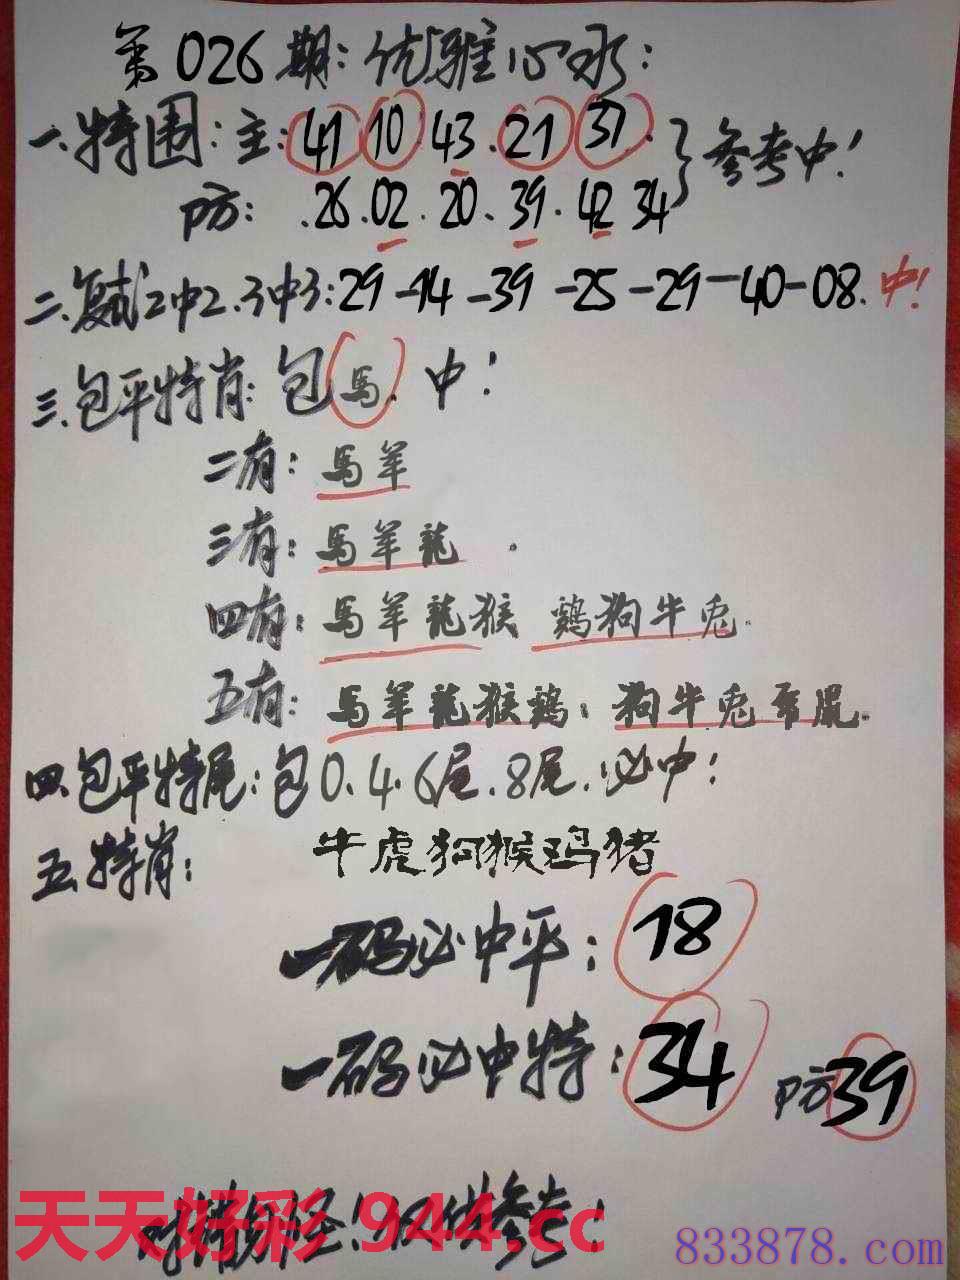 第026期:优雅心水:
一.特围:主:41 10.43.21.37.
参考中!
防:.26.02.20.39.42 34
二.复试2中2.3中3:29-14-39-25-29-40-08.中!
三.包平特肖:包馬.中!
二有:馬羊
三有:馬羊龍.
四有:馬羊龍猴 鷄狗牛兔.
五有:馬羊龍猴鷄:狗牛兔鼠.
四.包平特尾:包0.4.6尾.8尾.必中!
五.特肖:牛虎狗猴鸡猪
一码必中平:18
一码必中特:34 防39
天天好彩 944.cc
仅供参考!
833878.com